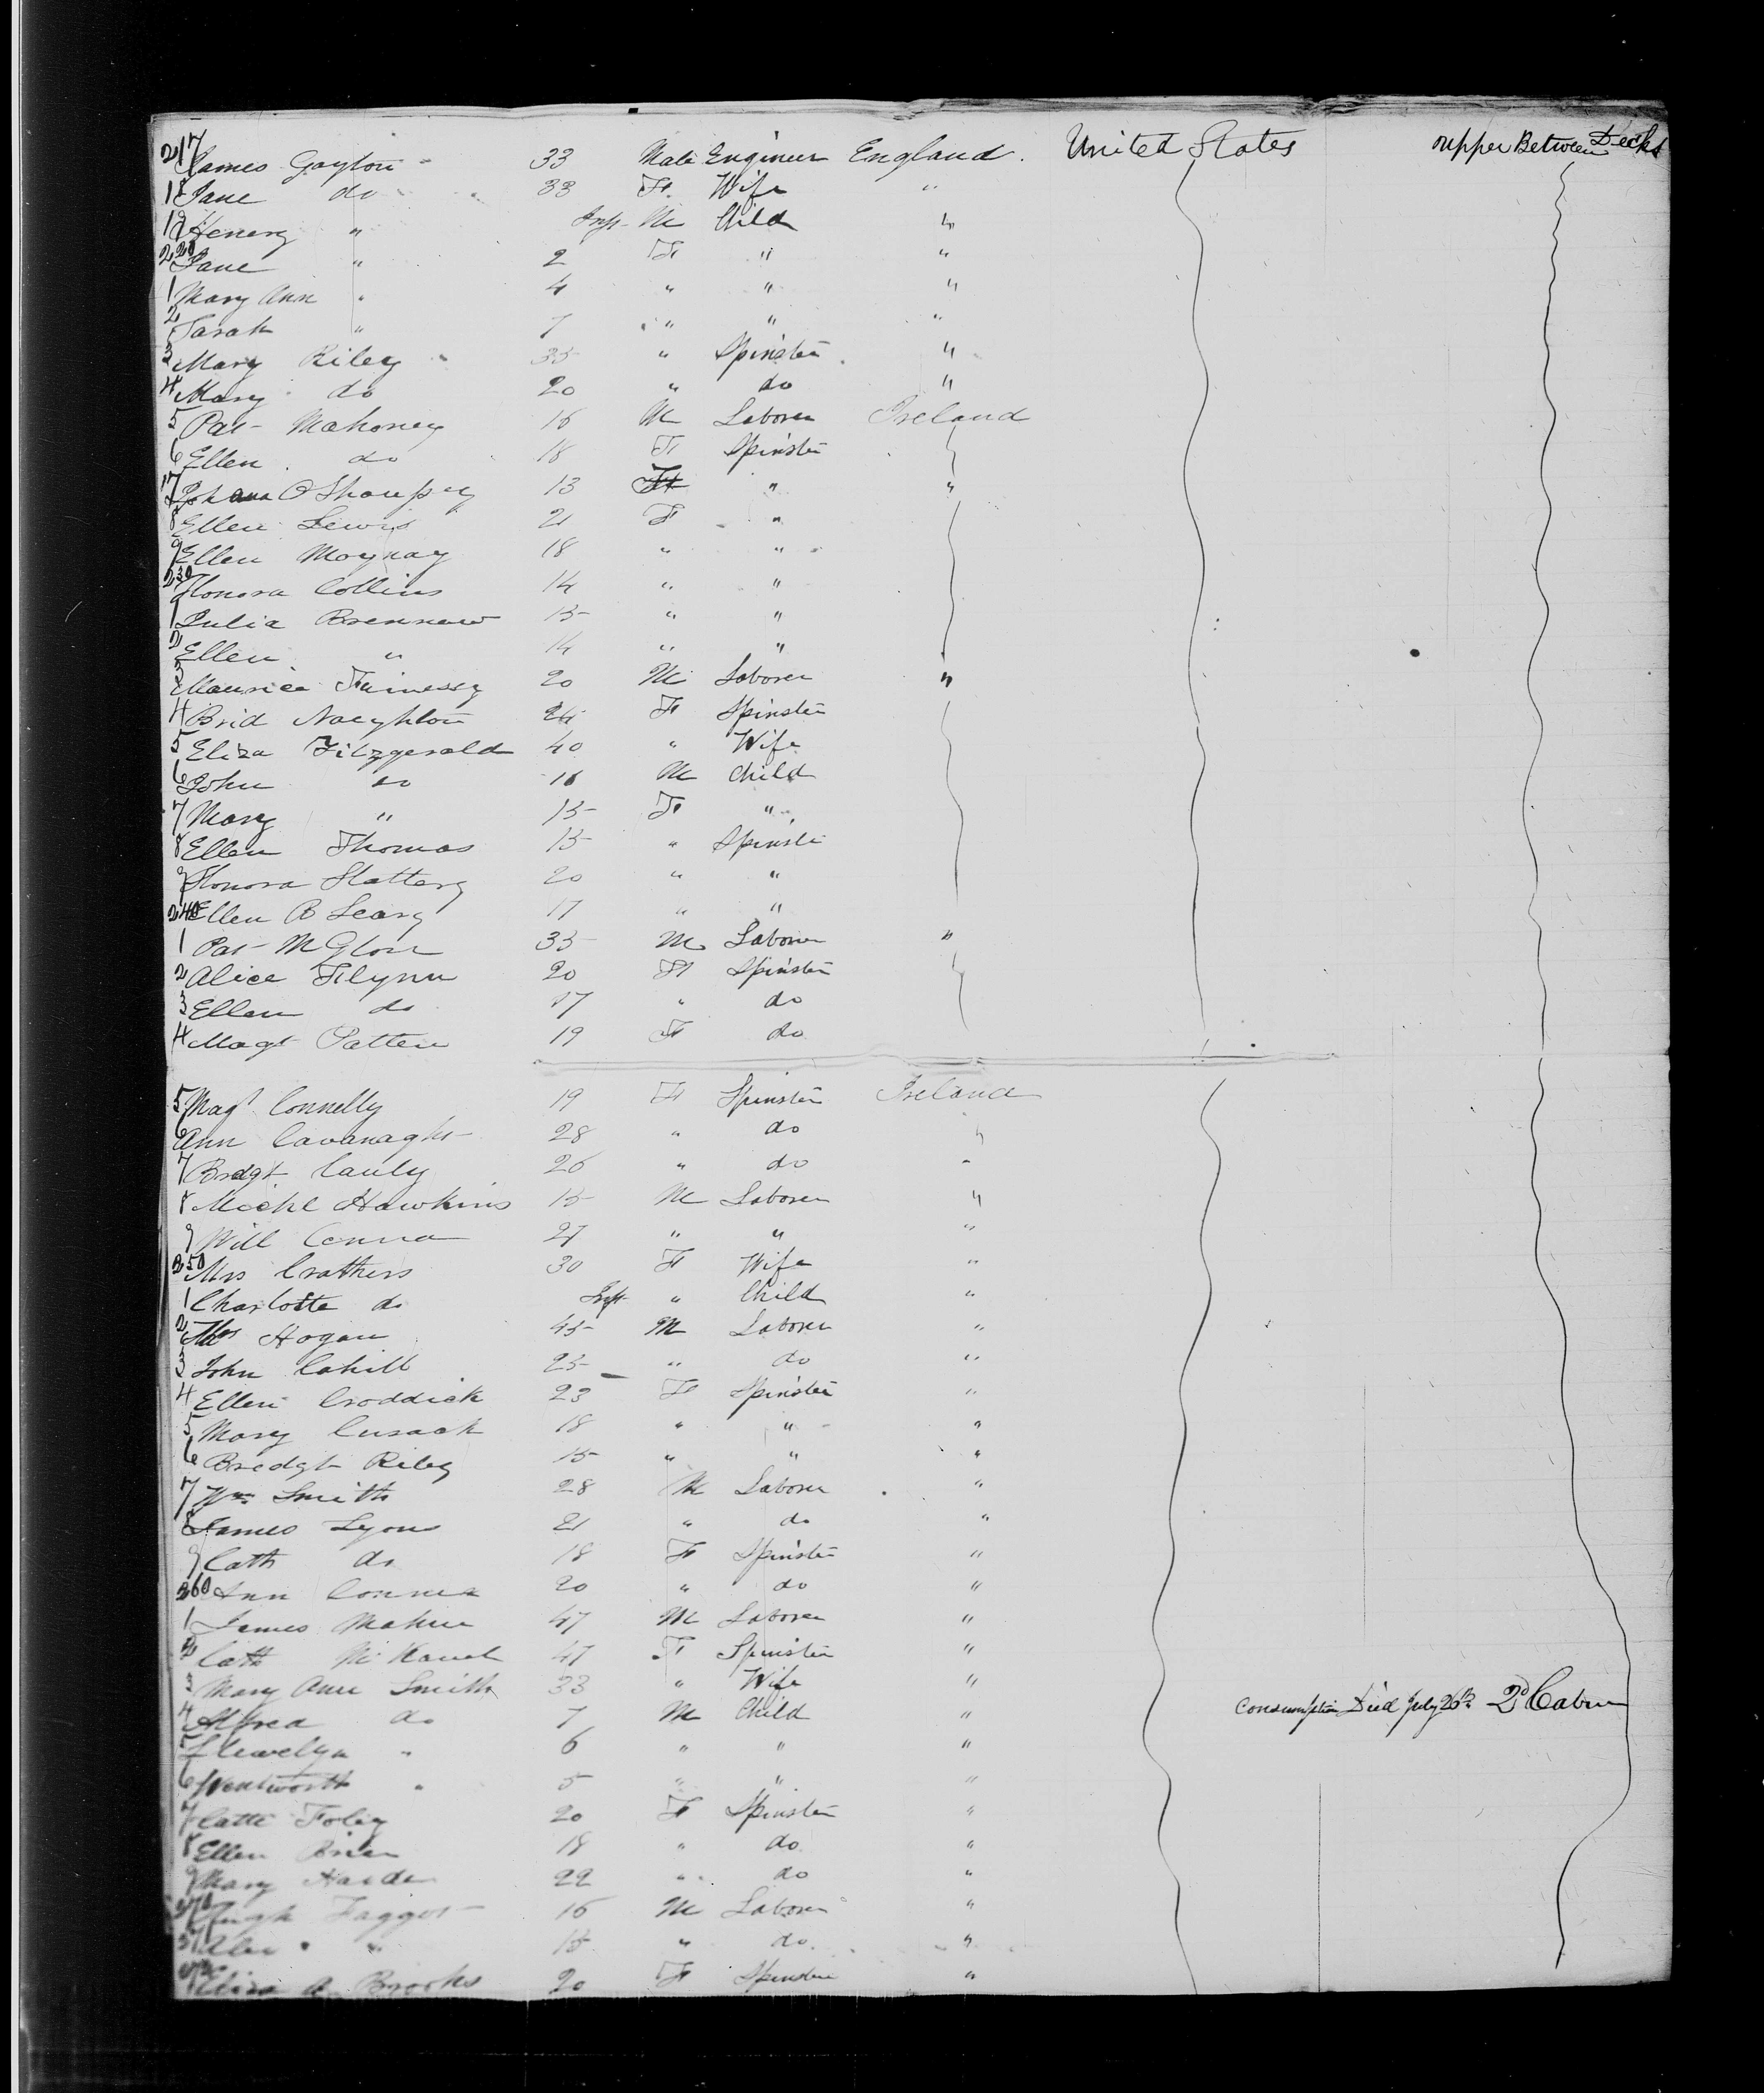 217 James Gayton 33 Male Engineer England. United States upper Between Decks
18 Jane do 33 F. Wife "
19 Henery " Inft M Child "
220 Jane " 2 F " "
1 Mary Ann " 4 " " "
2 Sarah " 7 " " "
3 Mary Riley 35 " Spinster "
4 Mary do 20 " do "
5 Pat Mahoney 16 M Laborer Ireland
6 Ellen do 18 F Spinster
7 Johana 13 F " "
8 Ellen Lewis 21 F "
9 Ellen Moynay 18 " "
230 Honora Collins 14 " "
1 Julia Brennaw 15 " "
2 Ellen " 14 " "
3 Maurice 20 M Laborer "
4 Brid Naeyhton F Spinster
5 Eliza Fitzgerald 40 " Wife
6 John do 16 M Child
7 Mary " 15 F "
8 Ellen Thomas 15 " Spinste
9 Honora Slattery 20 " "
240 Ellen O Leary 17 " "
1 Pat McGlou 35 M Laborer "
2 Alice Flynn 20 F Spinster
3 Ellen do 17 " do
4 Magt Patten 19 F do
5 Magt Connelly 19 F Spinster Ireland
6 Ann Cavanagh 28 " do "
7 Bredgt Cauly 26 " do "
8 Michl Hawkins 15 M Laborer "
9 Will Conna 27 " " "
250 Mrs Crathers 30 F Wife "
1 Charlotte do Inft " Child "
2 Thos Hogan 45 M Laborer "
3 John Cahill 25 " do "
4 Ellen Croddick 23 F Spinster "
5 Mary Cusack 18 " " "
6 Bredgt Riley 15 " " "
7 Wm Smith 28 M Laborer "
8 James Lyons 21 " do "
9 Cath do 18 F Spinster "
260 Ann Connea 20 " do "
1 James Maher 47 M Laborer "
2 Cath 47 F Spinster "
3 Mary Ann Smith 33 " Wife " Consumption Died July 26th 2d Cabin
4 Alfred do 7 M Child "
5 Llewellyn " 6 " " "
6 Wentworth " 5 " " "
7 Cath Foley 20 F Spinster "
8 Ellen Brien 18 " do "
9 Mary 22 " do "
270 Hugh Faggot 16 M Laborer "
271 " 15 " do "
Eliza A Brooks 20 F Spinster "